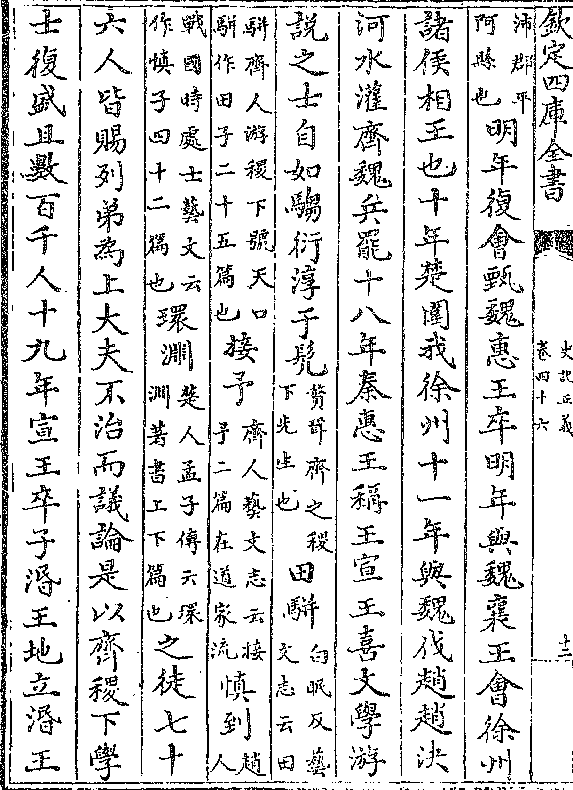 欽定四庫全書
史記正義
卷四十六
十二
沛郡平阿縣也明年復會甄魏惠王卒明年與魏襄王會徐州
諸侯相王也十年楚圍我徐州十一年與魏伐趙趙決
河水灌齊魏兵罷十八年秦惠王稱王宣王喜文學游
說之士自如騶衍淳于髠贅壻齊之稷下先生也田駢白眠反藝文志云田
駢齊人游稷下號天口駢作田子二十五篇也接予齊人藝文志云接予二篇在道家流慎到趙人
戰國時處士藝文云作慎子四十二篇也環淵楚人孟子傳云環淵著書上下篇也之徒七十
六人皆賜列弟為上大夫不治而議論是以齊稷下學
士復盛且數百千人十九年宣王卒子湣王地立湣王